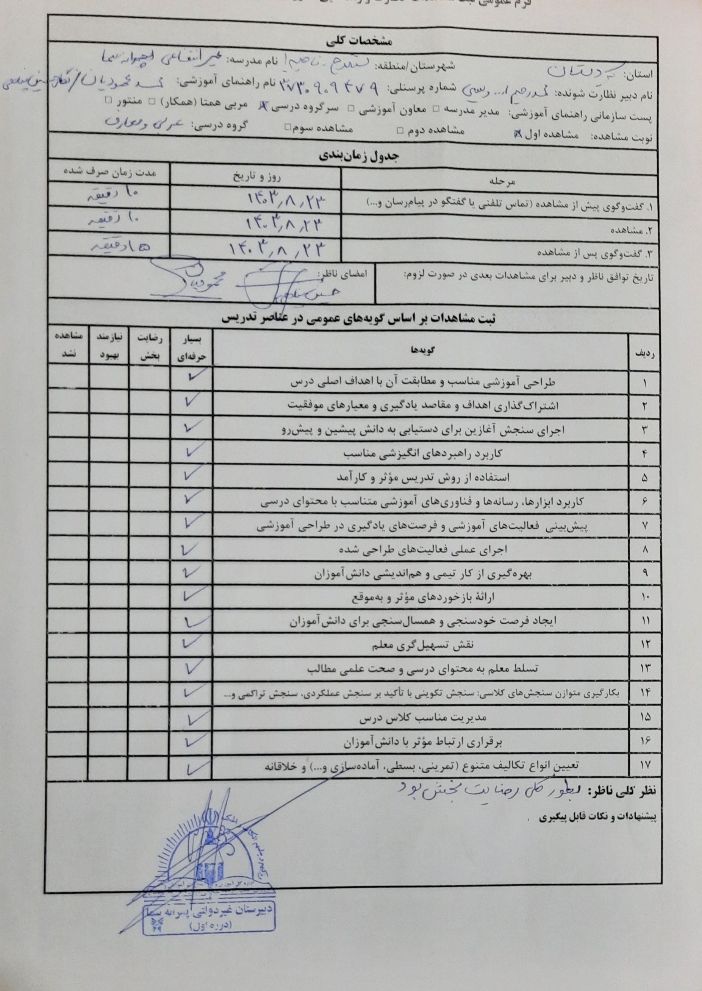 مشخصات کلی
استان: کردستان شهرستان/منطقه: سنندج ناحیه ۱ نام مدرسه: غیرانتفاعی پسرانه سما
نام دبیر نظارت شونده: شماره پرسنلی: نام راهنمای آموزشی:
پست سازمانی راهنمای آموزشی: مدیر مدرسه □ معاون آموزشی □ سرگروه درسی ☒ مربی همتا (همکار) □ منتور □
نوبت مشاهده: مشاهده اول ☒ مشاهده دوم □ مشاهده سوم □ گروه درسی: عربی و معارف
جدول زمان‌بندی
مرحله روز و تاریخ مدت زمان صرف شده
۱. گفت‌وگوی پیش از مشاهده (تماس تلفنی یا گفتگو در پیام‌رسان و...) ۱۴۰۳٫۸٫۲۳ ۱۰ دقیقه
۲. مشاهده ۱۴۰۳٫۸٫۲۳ ۱۰ دقیقه
۳. گفت‌وگوی پس از مشاهده ۱۴۰۳٫۸٫۲۳ دقیقه
تاریخ توافق ناظر و دبیر برای مشاهدات بعدی در صورت لزوم: امضای ناظر:
ثبت مشاهدات بر اساس گویه‌های عمومی در عناصر تدریس
ردیف گویه‌ها بسیار حرفه‌ای رضایت بخش نیازمند بهبود مشاهده نشد
۱ طراحی آموزشی مناسب و مطابقت آن با اهداف اصلی درس ✓
۲ اشتراک‌گذاری اهداف و مقاصد یادگیری و معیارهای موفقیت ✓
۳ اجرای سنجش آغازین برای دستیابی به دانش پیشین و پیش‌رو ✓
۴ کاربرد راهبردهای انگیزشی مناسب ✓
۵ استفاده از روش تدریس مؤثر و کارآمد ✓
۶ کاربرد ابزارها، رسانه‌ها و فناوری‌های آموزشی متناسب با محتوای درسی ✓
۷ پیش‌بینی فعالیت‌های آموزشی و فرصت‌های یادگیری در طراحی آموزشی ✓
۸ اجرای عملی فعالیت‌های طراحی شده ✓
۹ بهره‌گیری از کار تیمی و هم‌اندیشی دانش‌آموزان ✓
۱۰ ارائهٔ بازخوردهای مؤثر و به‌موقع ✓
۱۱ ایجاد فرصت خودسنجی و همسال‌سنجی برای دانش‌آموزان ✓
۱۲ نقش تسهیل‌گری معلم ✓
۱۳ تسلط معلم به محتوای درسی و صحت علمی مطالب ✓
۱۴ بکارگیری متوازن سنجش‌های کلاسی: سنجش تکوینی با تأکید بر سنجش عملکردی، سنجش تراکمی و... ✓
۱۵ مدیریت مناسب کلاس درس ✓
۱۶ برقراری ارتباط مؤثر با دانش‌آموزان ✓
۱۷ تعیین انواع تکالیف متنوع (تمرینی، بسطی، آماده‌سازی و...) و خلاقانه ✓
نظر کلی ناظر: بطور کل رضایت بخش بود
پیشنهادات و نکات قابل پیگیری .
دبیرستان غیردولتی پسرانه سما
(دوره اول)